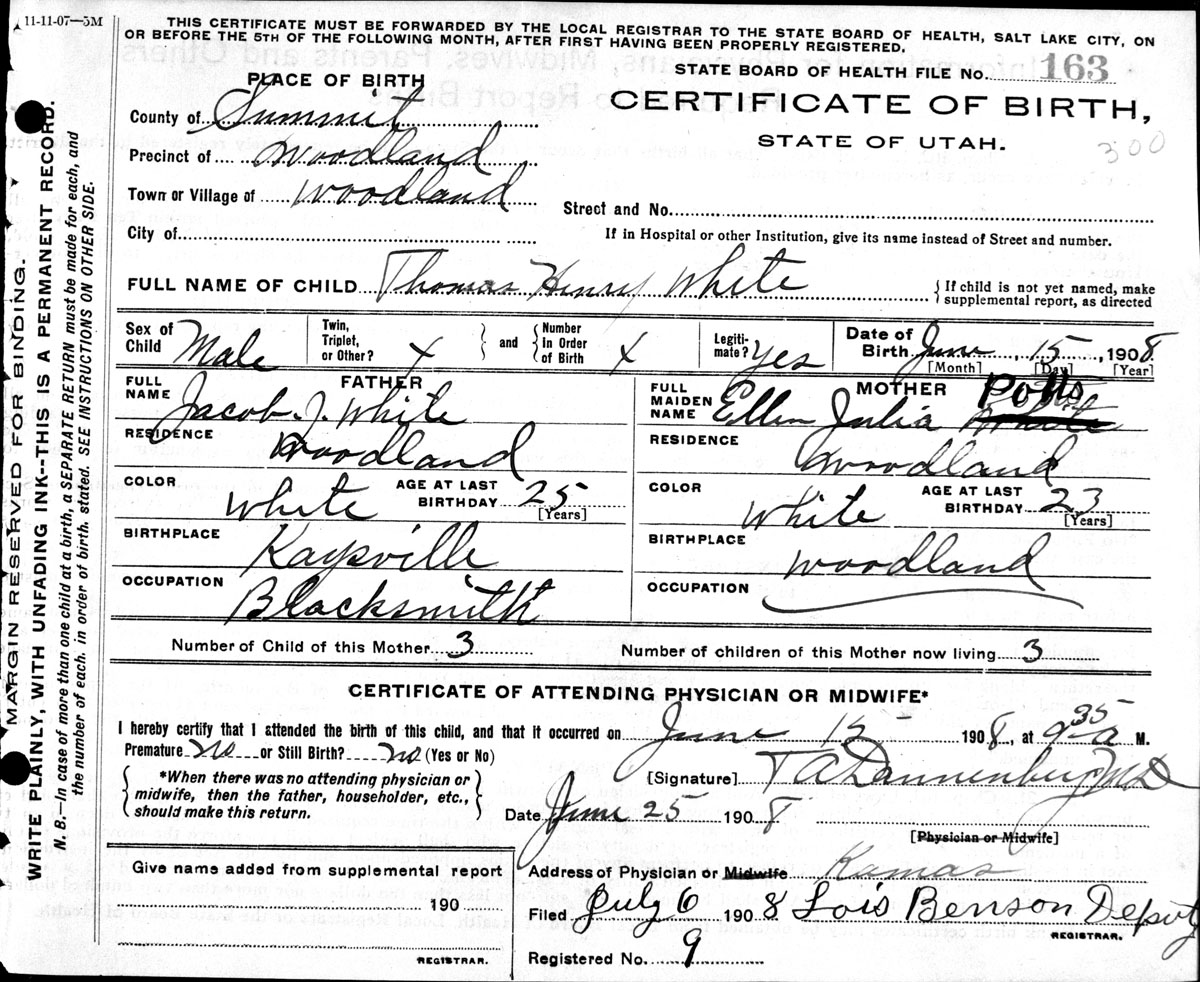 11-11-07—5M
THIS CERTIFICATE MUST BE FORWARDED BY THE LOCAL REGISTRAR TO THE STATE BOARD OF HEALTH, SALT LAKE CITY, ON
OR BEFORE THE 5TH OF THE FOLLOWING MONTH, AFTER FIRST HAVING BEEN PROPERLY REGISTERED.
PLACE OF BIRTH
STATE BOARD OF HEALTH FILE No. 163
CERTIFICATE OF BIRTH,
STATE OF UTAH.
300
County of Summit
Precinct of Woodland
Town or Village of Woodland
Street and No.
City of
If in Hospital or other Institution, give its name instead of Street and number.
FULL NAME OF CHILD Thomas Henry White
{ If child is not yet named, make
supplemental report, as directed
Sex of Child Male
Twin, Triplet, or Other? X } and { Number In Order of Birth X
Legiti-mate? Yes
Date of Birth June, 15, 1908
[Month] [Day] [Year]
FATHER
FULL NAME Jacob. J. White
RESIDENCE Woodland
COLOR White AGE AT LAST BIRTHDAY 25
[Years]
BIRTHPLACE Kaysville
OCCUPATION Blacksmith
MOTHER
FULL MAIDEN NAME Ellen Julia White Potts
RESIDENCE Woodland
COLOR White AGE AT LAST BIRTHDAY 23
[Years]
BIRTHPLACE Woodland
OCCUPATION
Number of Child of this Mother 3
Number of children of this Mother now living 3
CERTIFICATE OF ATTENDING PHYSICIAN OR MIDWIFE*
I hereby certify that I attended the birth of this child, and that it occurred on June 15 1908, at 9 35 a M.
Premature no or Still Birth? no (Yes or No)
{ *When there was no attending physician or
midwife, then the father, householder, etc.,
should make this return. }
[Signature] T A Dannenberg MD
Date June 25 1908
[Physician or Midwife]
Give name added from supplemental report
190
REGISTRAR.
Address of Physician or Midwife Kamas
Filed July 6 1908 Lois Benson Deputy
REGISTRAR.
Registered No. 9
MARGIN RESERVED FOR BINDING.
WRITE PLAINLY, WITH UNFADING INK--THIS IS A PERMANENT RECORD.
N. B.—In case of more than one child at a birth, a SEPARATE RETURN must be made for each, and
the number of each, in order of birth, stated. SEE INSTRUCTIONS ON OTHER SIDE.